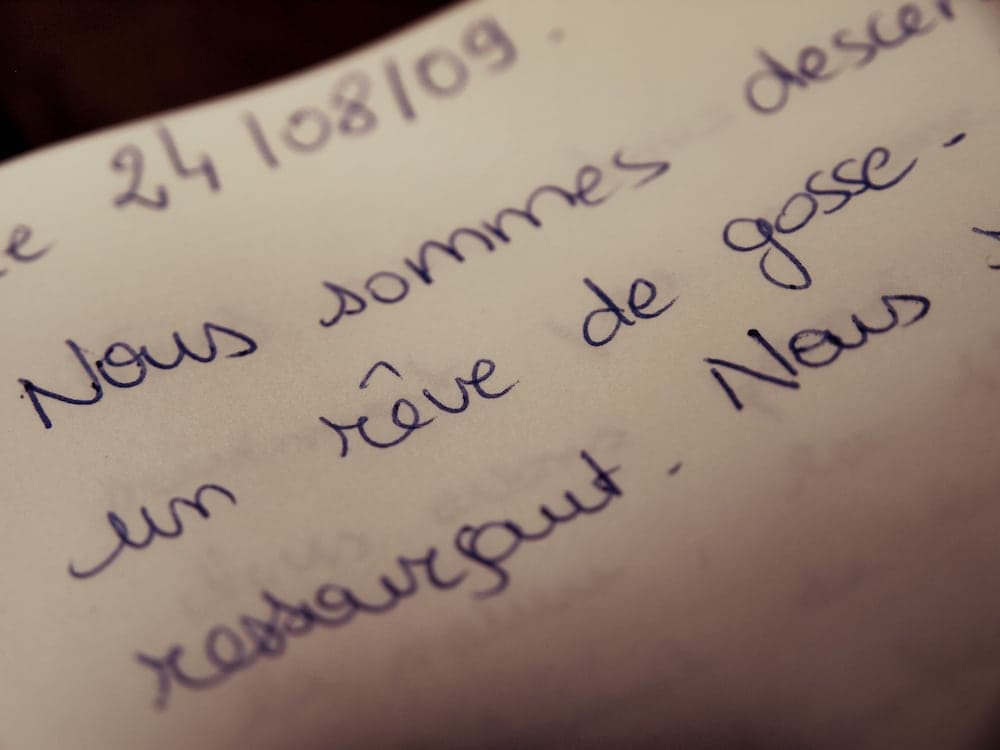 e 24/08/09.
Nous sommes descen
un rêve de gosse.
ressourçant. Nous